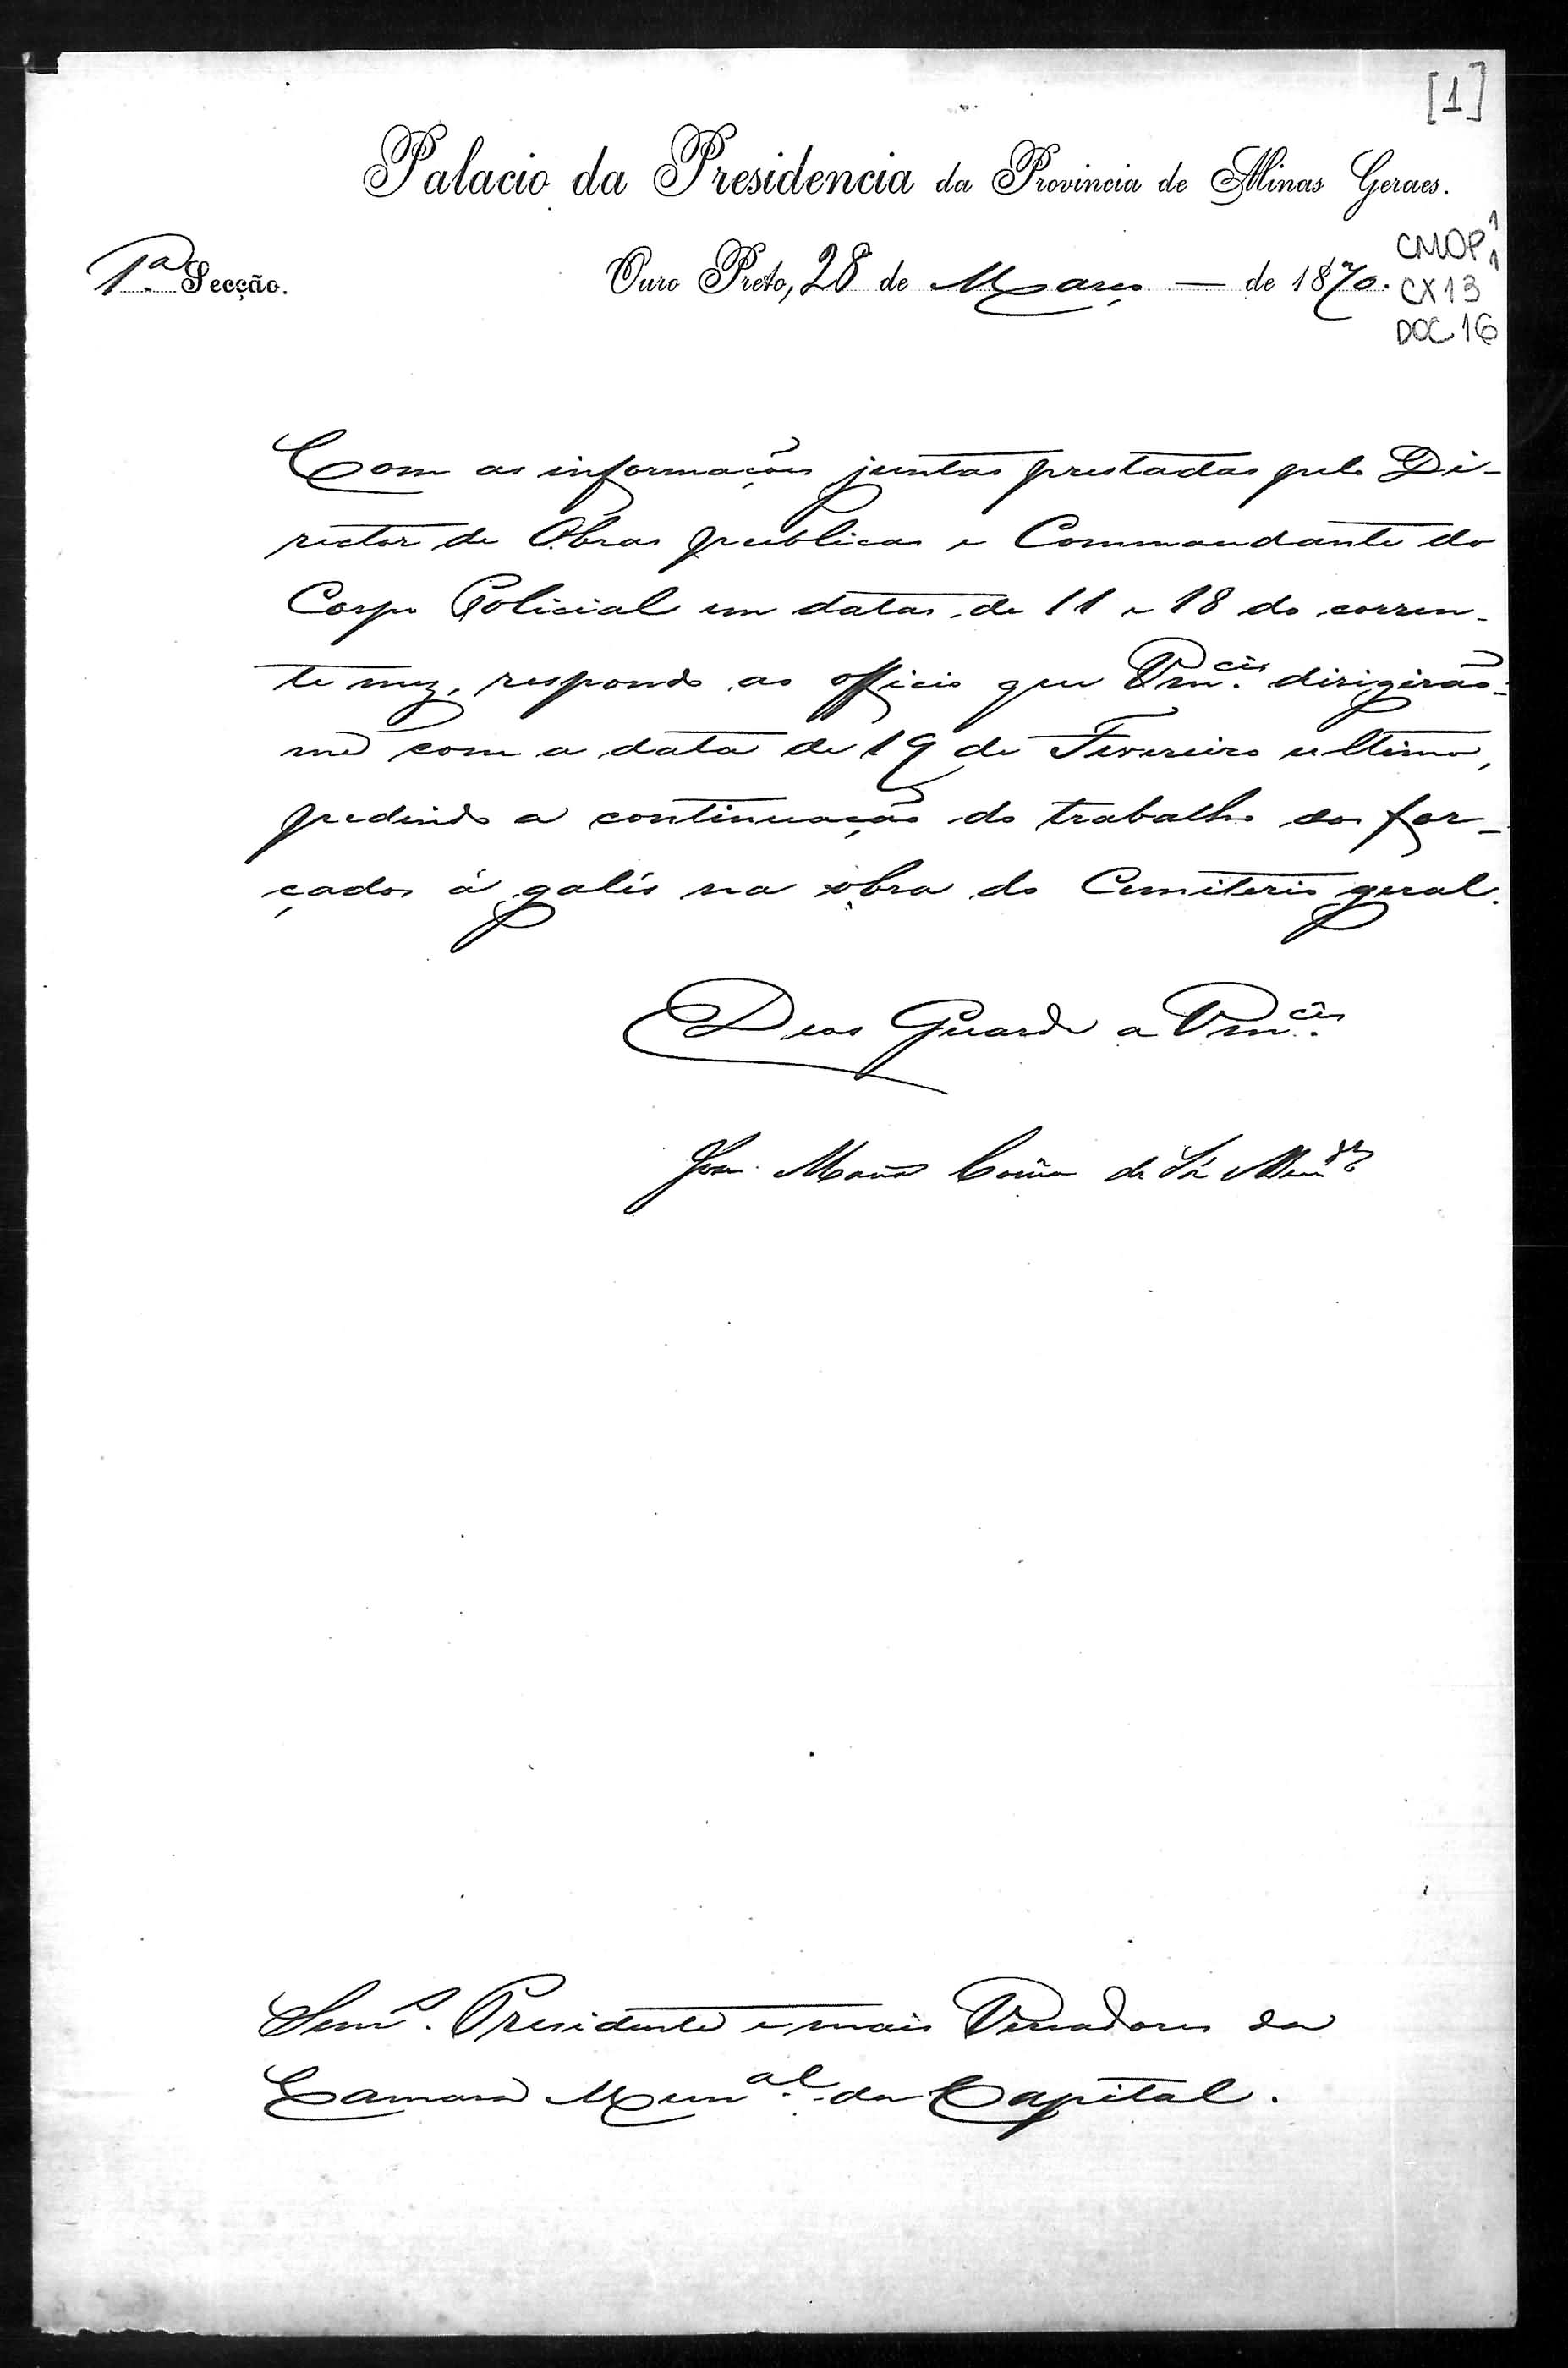 [1]
Palacio da Presidencia da Provincia de Minas Geraes.
CMOP 1 1
1ª Secção. Ouro Preto, 28 de Março — de 1870.
CX13
DOC 16
Com as informações juntas prestadas pelo Di-
rector de Obras publicas e Commandante do
Corpo Policial em datas de 11 e 18 do corren-
te mez, respondo ao officio que Vm.cês dirigirão-
me com a data de 19 de Fevereiro ultimo,
pedindo a continuação do trabalho dos for-
çados á galés na obra do Cemiterio geral.
Deos Guarde a Vm.cês
José Maria Corrêa de Sá
Presidente e mais Vereadores da
Camara Mun.al da Capital.